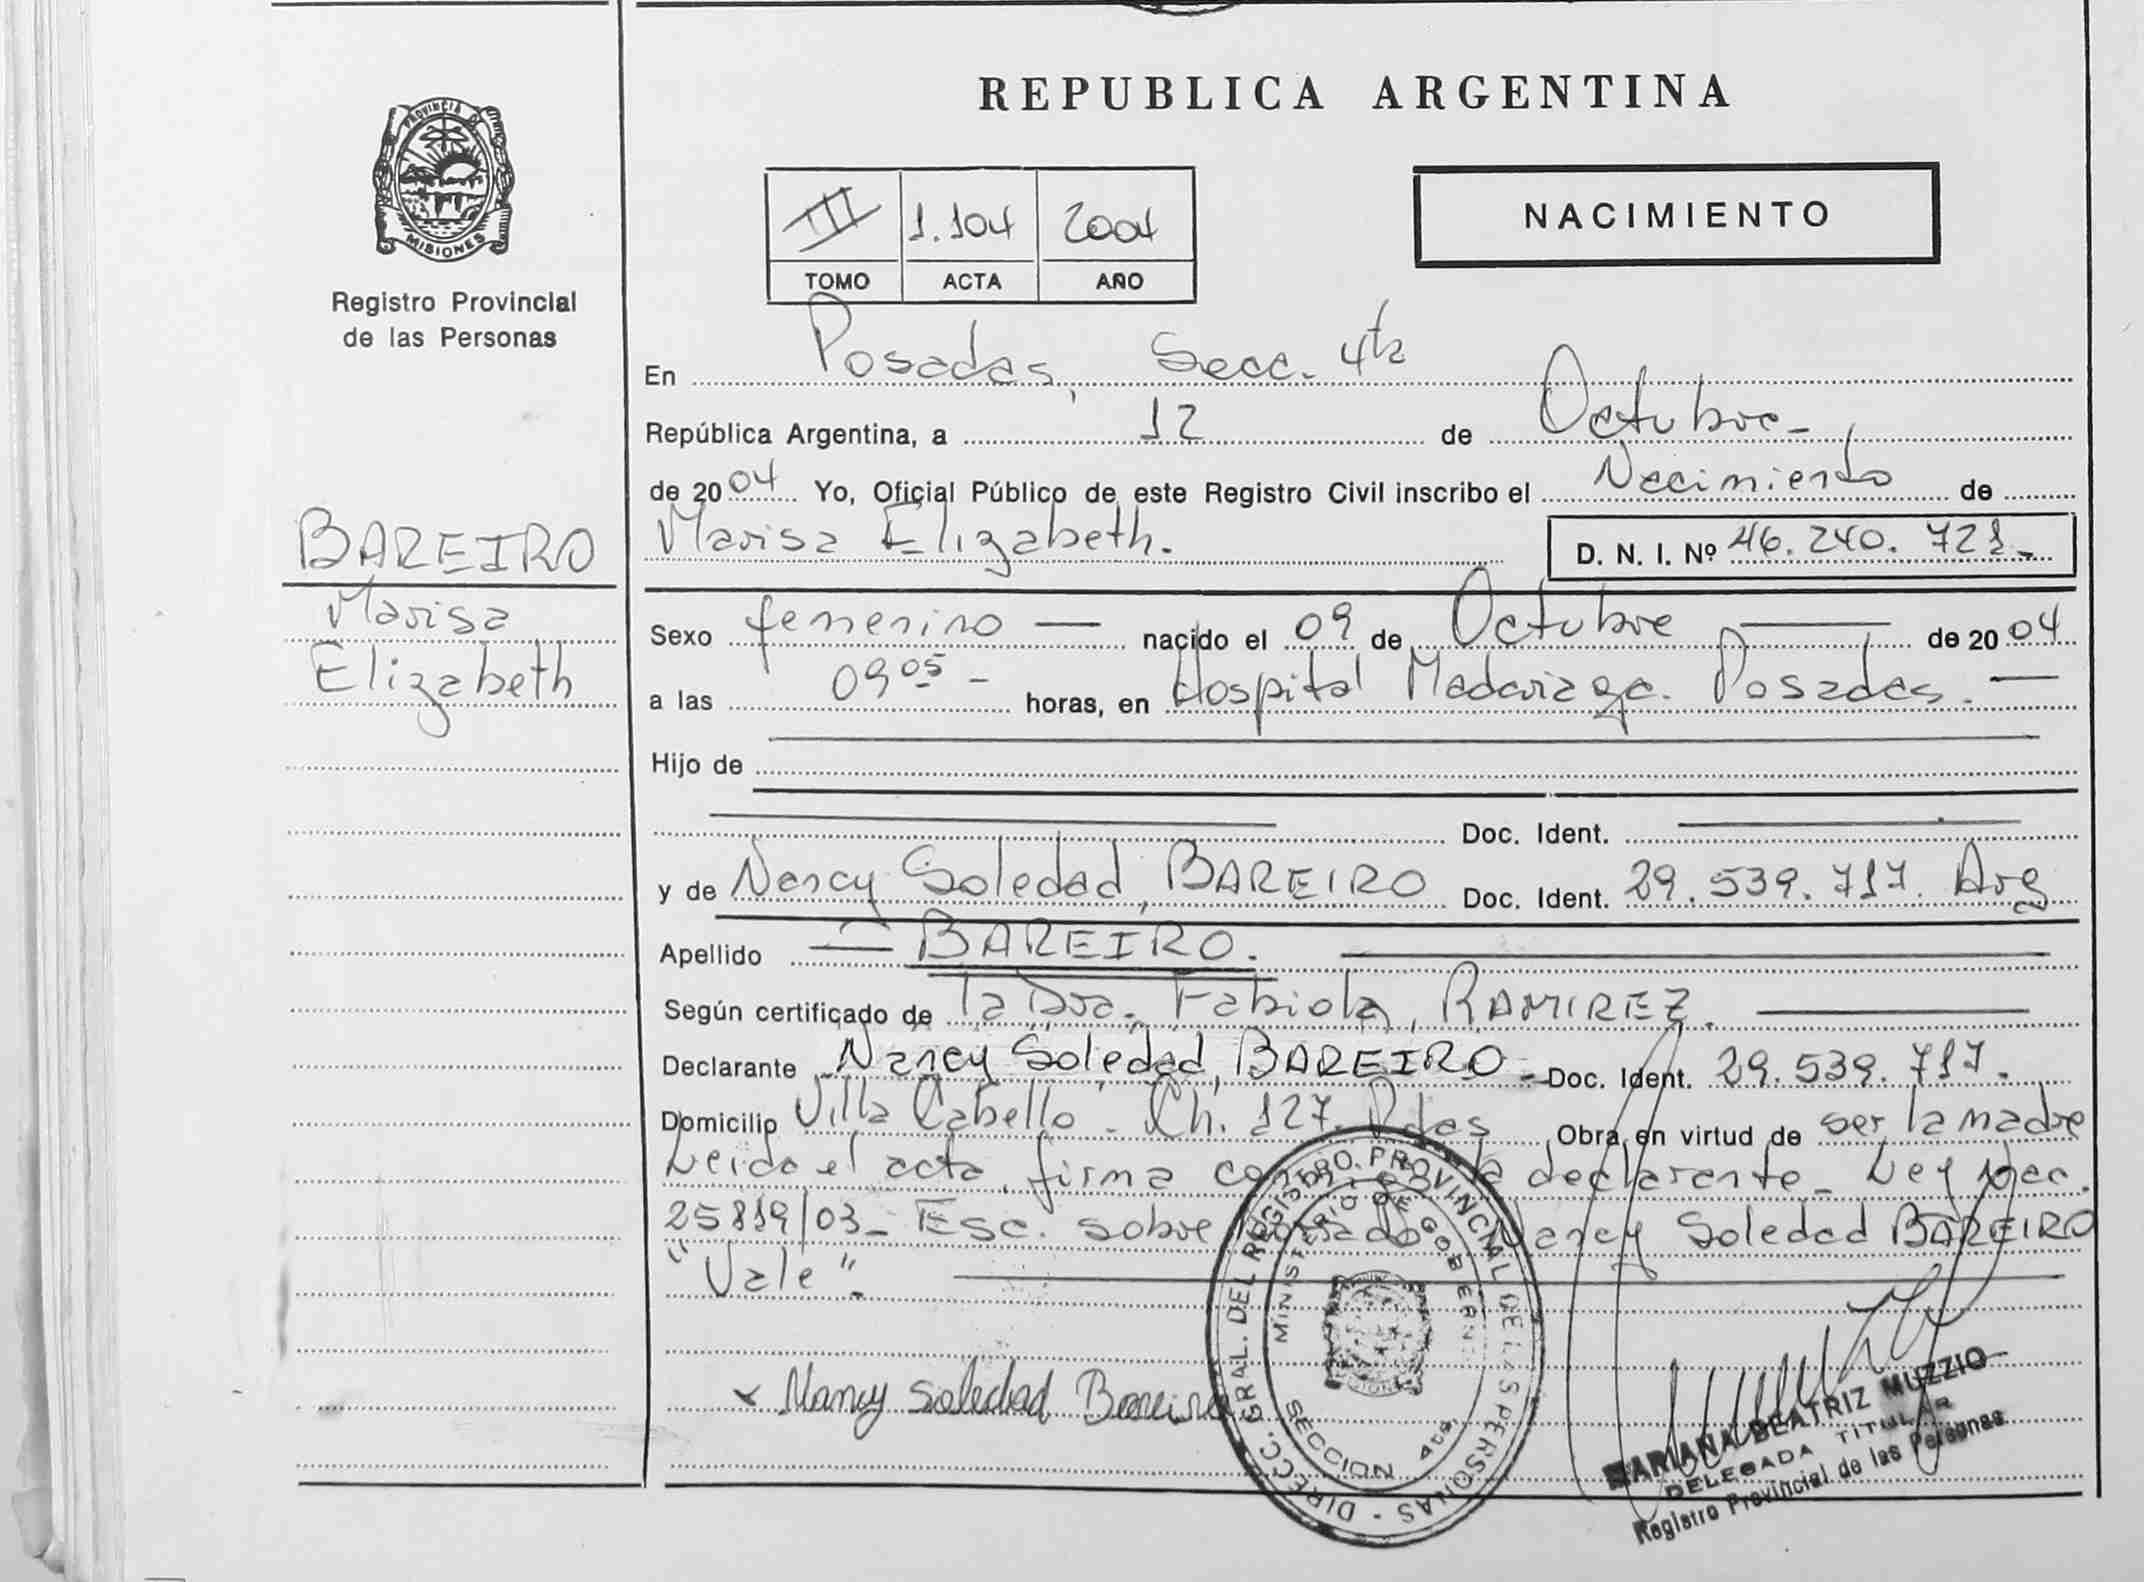 REPUBLICA ARGENTINA
PROVINCIA DE
MISIONES
Registro Provincial
de las Personas
III 1.104 2004
TOMO ACTA AÑO
NACIMIENTO
En Posadas, Secc. 4ta
República Argentina, a 12 de Octubre
de 2004 Yo, Oficial Público de este Registro Civil inscribo el Nacimiento de
Marisa Elizabeth. D. N. I. Nº 46.240.721
BAREIRO
Marisa
Elizabeth
Sexo femenino nacido el 09 de Octubre de 2004
a las 09 05 horas, en Hospital Madariaga. Posadas.
Hijo de
Doc. Ident.
y de Nancy Soledad, BAREIRO Doc. Ident. 29.539.717. Arg
Apellido BAREIRO.
Según certificado de la Dra. Fabiola, RAMIREZ.
Declarante Nancy Soledad, BAREIRO Doc. Ident. 29.539.717.
Domicilio Villa Cabello - Ch. 127. Pdas Obra en virtud de ser la madre
Leida el acta, firma la declarante - Ley Nac.
25819/03 - Esc. sobre Nancy Soledad BAREIRO
"Vale".
x Nancy Soledad Bareiro
DIRECC. GRAL. DEL REGISTRO PROVINCIAL DE LAS PERSONAS
MINISTERIO DE GOBIERNO
SECCION 4ta
MARIANA BEATRIZ MUZZIO
DELEGADA TITULAR
Registro Provincial de las Personas